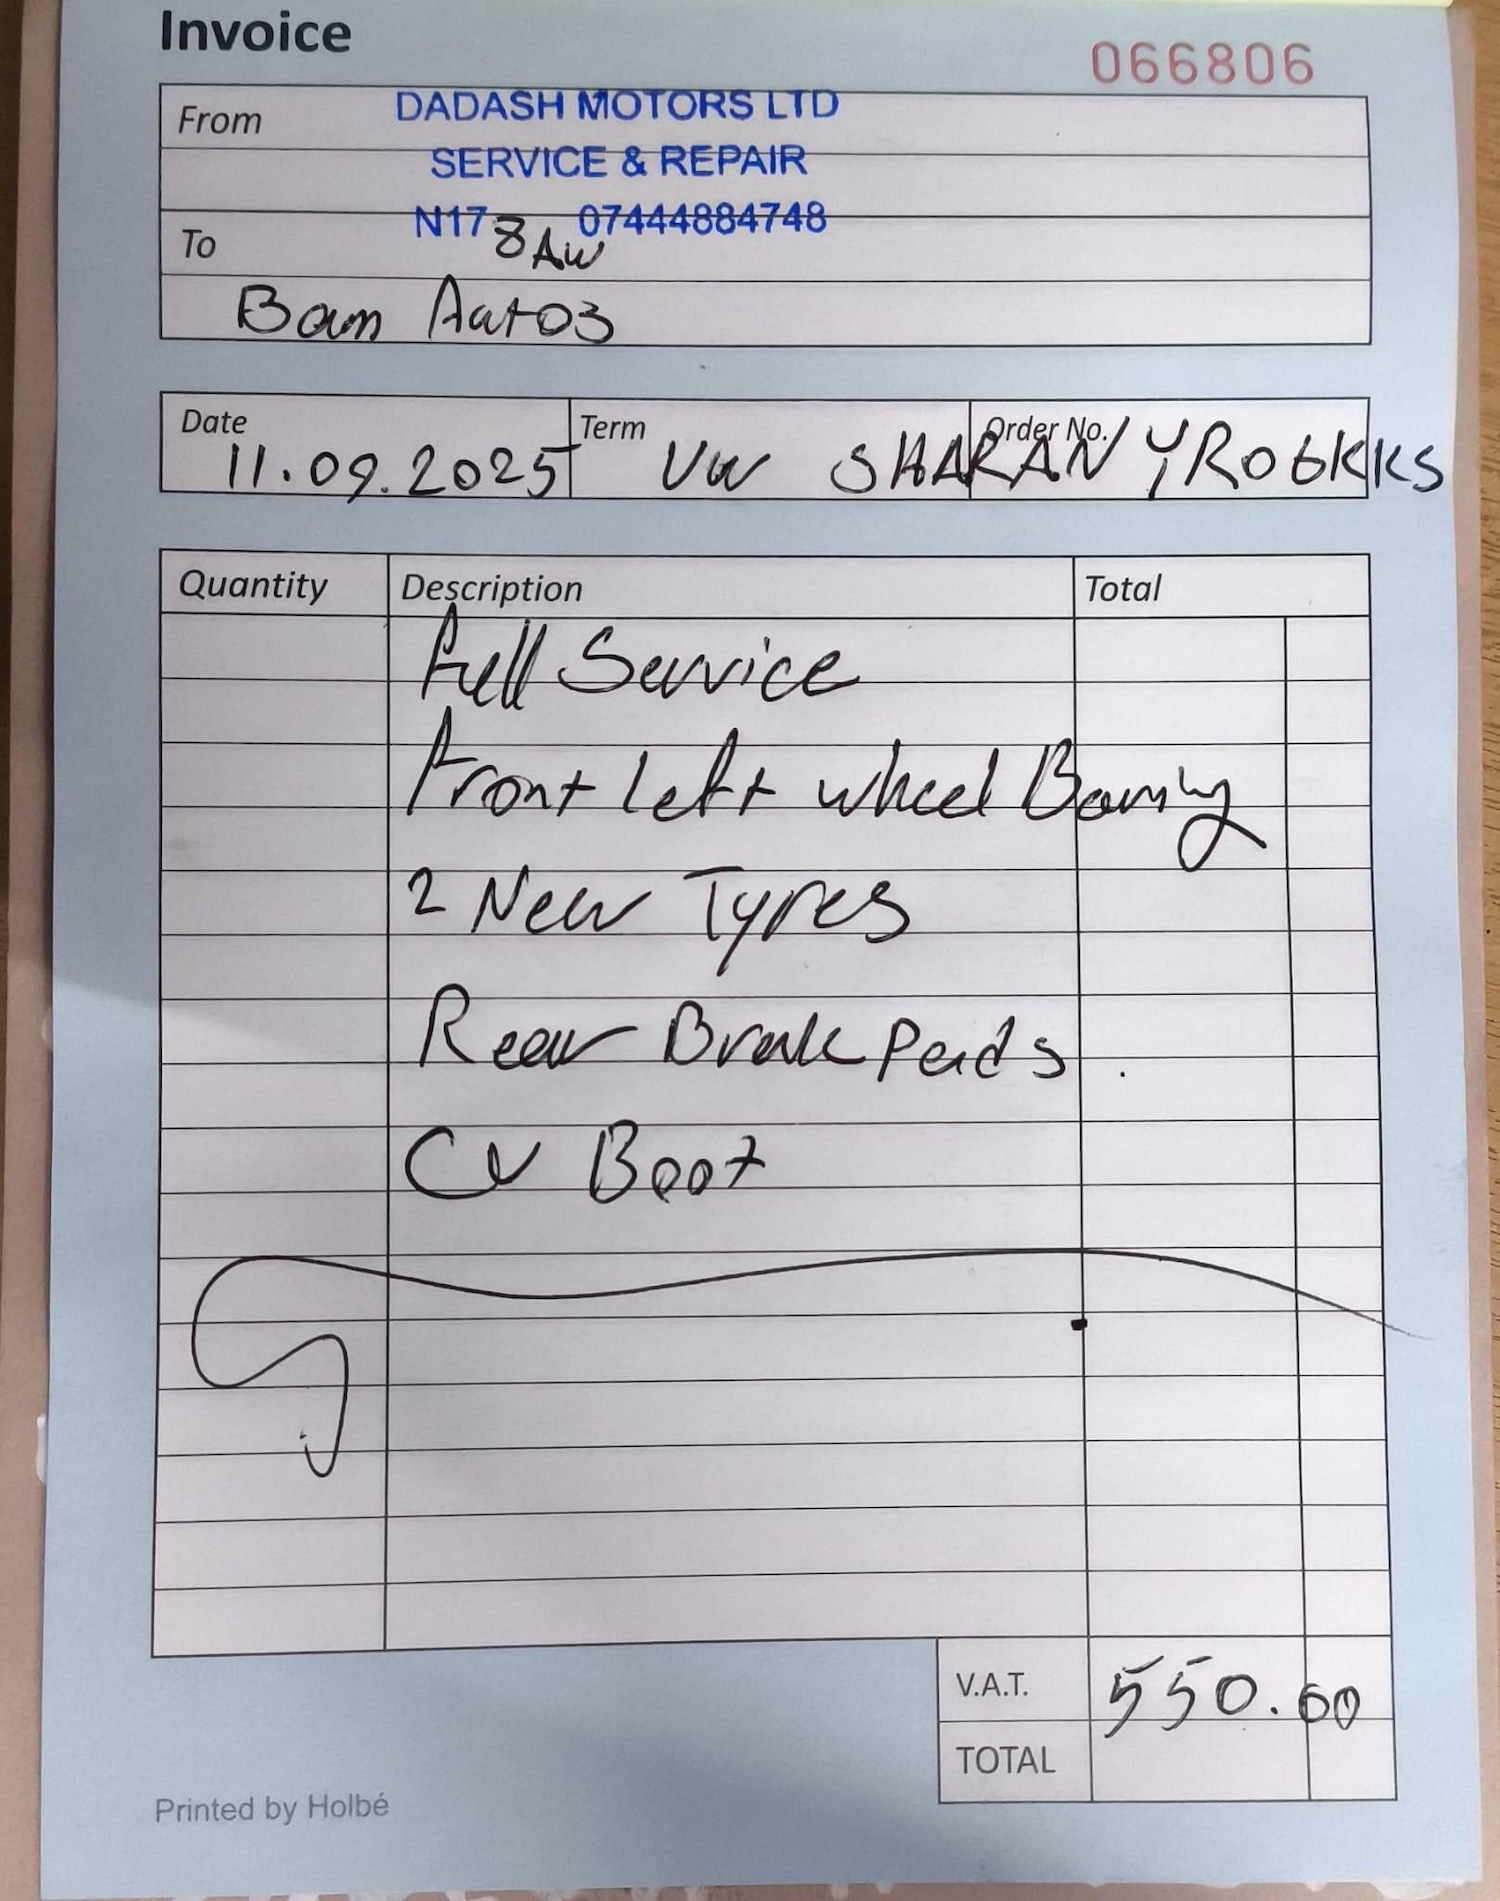 Invoice
066806
From DADASH MOTORS LTD
SERVICE & REPAIR
N17 8AW 07444884748
To
Bam Autos
Date Term Order No.
11.09.2025 VW SHARAN YR06KKS
Quantity Description Total
Full Service
Front left wheel Baring
2 New Tyres
Rear Brake Pads
CV Boot
V.A.T. 550.00
TOTAL
Printed by Holbé